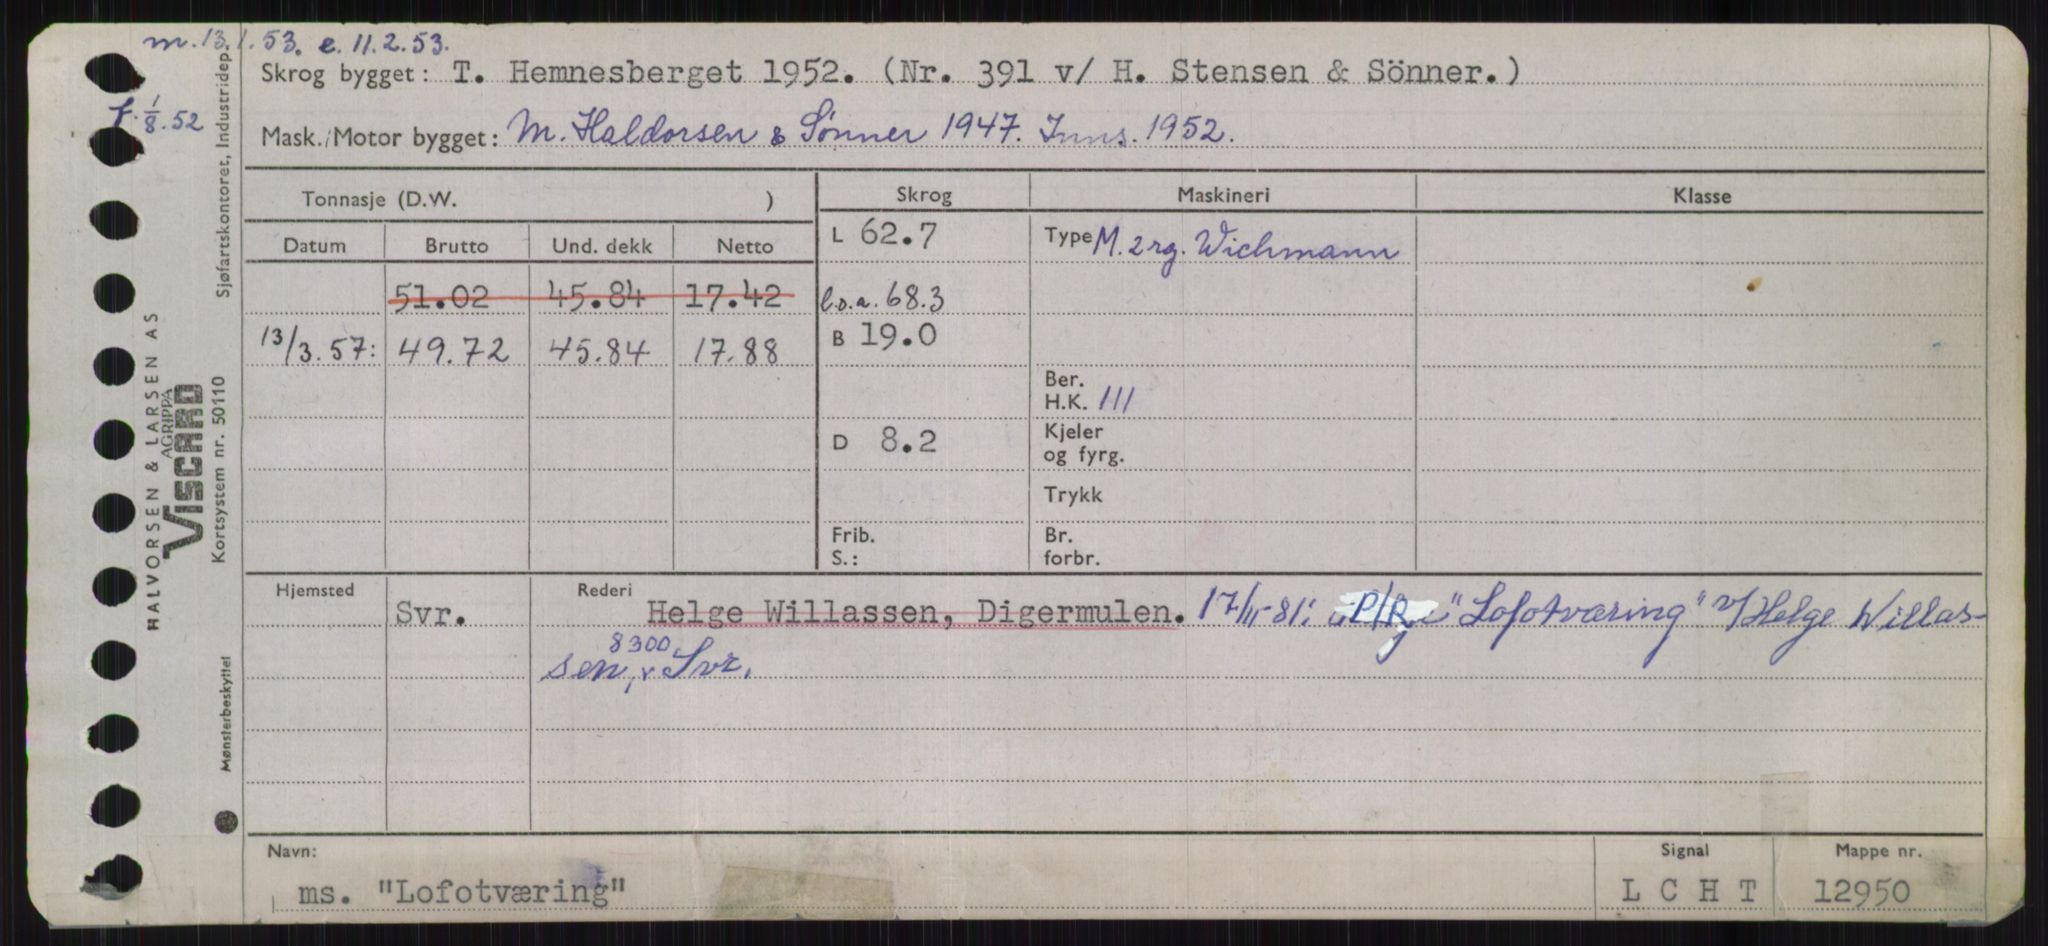 m. 13.1.53. e. 11.2.53.
Skrog bygget: T. Hemnesberget 1952. (Nr. 391 v/ H. Stensen & Sönner.)
f. 1/8.52
Mask./Motor bygget: M. Haldorsen & Sønner 1947. Inns. 1952.
Tonnasje (D.W. ) Skrog Maskineri Klasse
Datum Brutto Und. dekk Netto L 62.7 Type M. 2rg. Wichmann
51.02 45.84 17.42 l.o.a. 68.3
13/3.57: 49.72 45.84 17.88 B 19.0
Ber.
H.K. 111
D 8.2 Kjeler
og fyrg.
Trykk
Frib. Br.
S.: forbr.
Hjemsted Rederi
Svr. Helge Willassen, Digermulen. 17/11-81: P/R "Lofotværing" v/Helge Willas-
8300
sen, Svr.
Navn: Signal Mappe nr.
ms. "Lofotværing" L C H T 12950
HALVORSEN & LARSEN AS
AGRIPPA
VISCARD
Kortsystem nr. 50110
Sjøfartskontoret, Industridep.
Mønsterbeskyttet